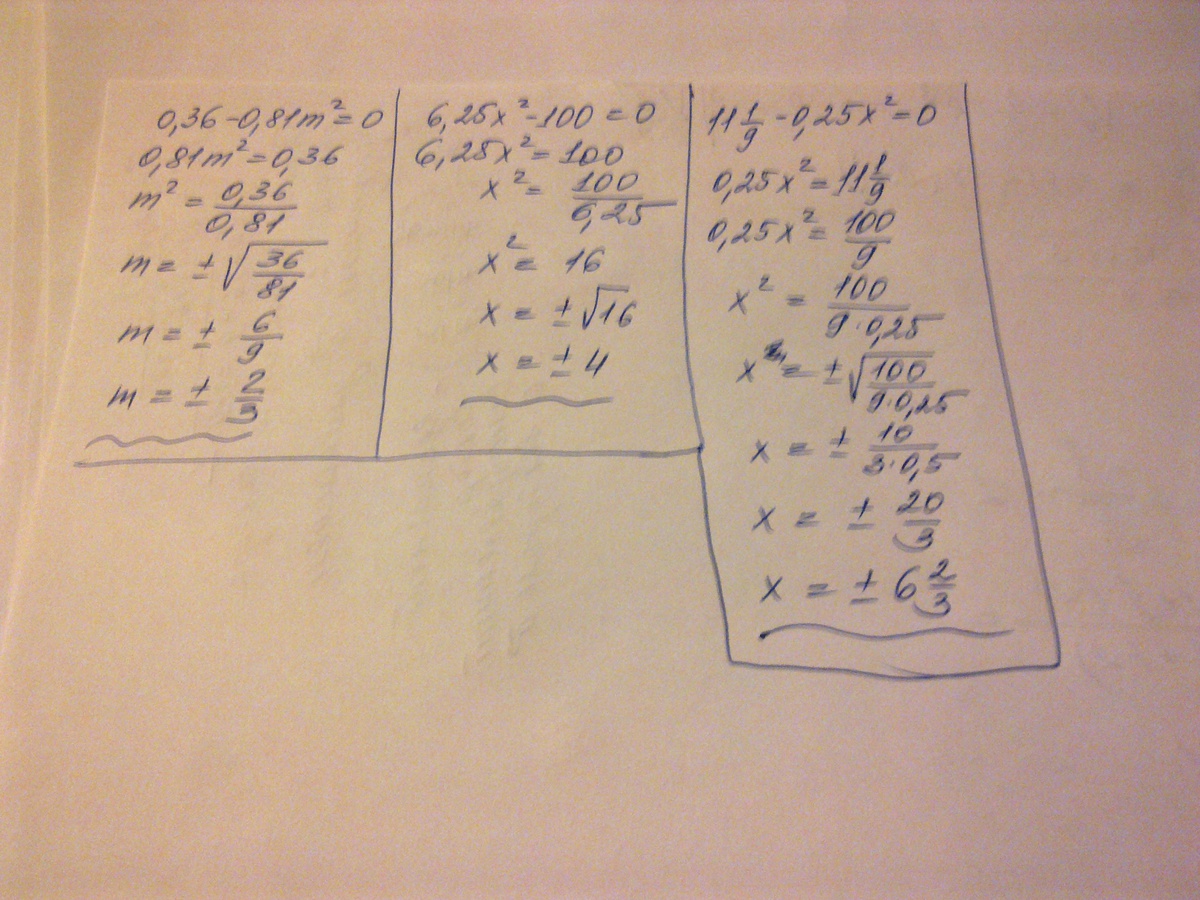 0,36-0,81m²=0
0,81m²=0,36
m²=0,36/0,81
m=±√36/81
m=±6/9
m=±2/3
6,25x²-100=0
6,25x²=100
x²=100/6,25
x²=16
x=±√16
x=±4
11 1/9-0,25x²=0
0,25x²=11 1/9
0,25x²=100/9
x²=100/9·0,25
x=±√100/9·0,25
x=±10/3·0,5
x=±20/3
x=±6 2/3